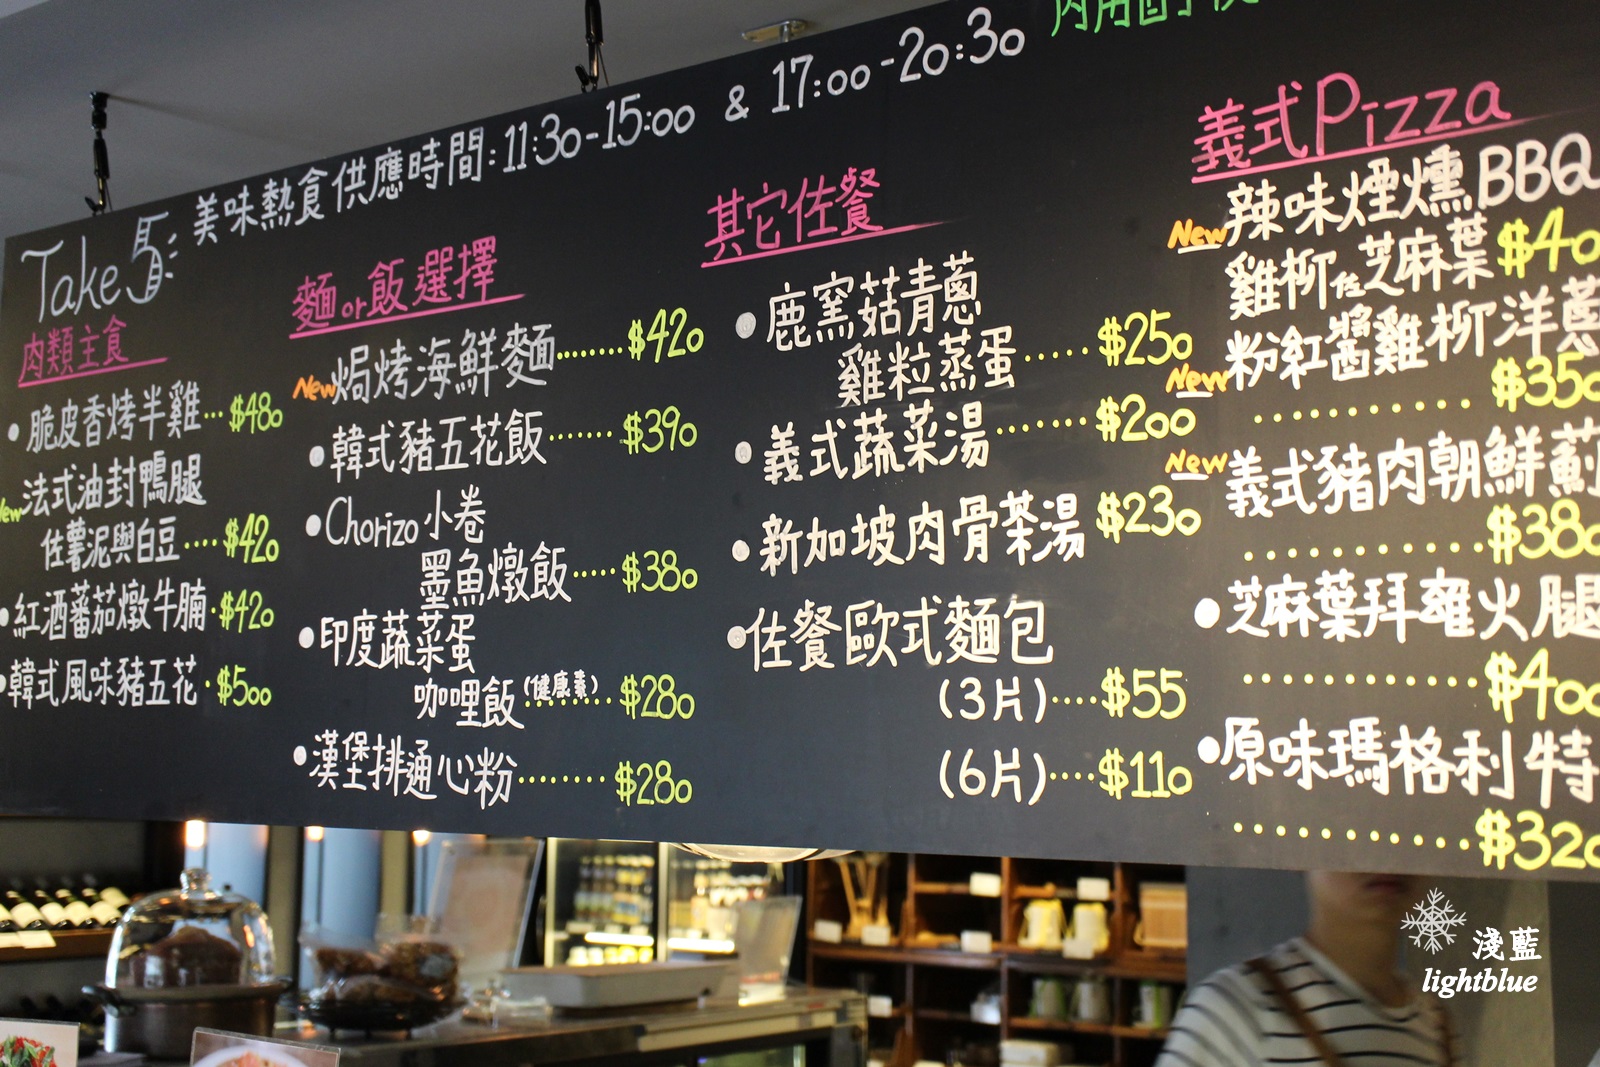 Take 5
美味熱食供應時間:11:30-15:00 & 17:00-20:30
肉類主食
•脆皮香烤半雞…$480
New法式油封鴨腿
佐薯泥與白豆….$420
•紅酒蕃茄燉牛腩.$420
•韓式風味豬五花.$500
麵or飯選擇
New焗烤海鮮麵……..$420
•韓式豬五花飯…….$390
•Chorizo小卷
墨魚燉飯…..$380
•印度蔬菜蛋
咖哩飯(健康素)………$280
•漢堡排通心粉……..$280
其它佐餐
•鹿窯菇青蔥
雞粒蒸蛋…..$250
•義式蔬菜湯…….$200
•新加坡肉骨茶湯 $230
•佐餐歐式麵包
(3片)….$55
(6片)….$110
義式Pizza
New辣味煙燻BBQ
雞柳佐芝麻葉$40
New粉紅醬雞柳洋蔥
………..$350
New義式豬肉朝鮮薊
………..$380
•芝麻葉拜雍火腿
…………$400
•原味瑪格利特
………..$320
淺藍
lightblue